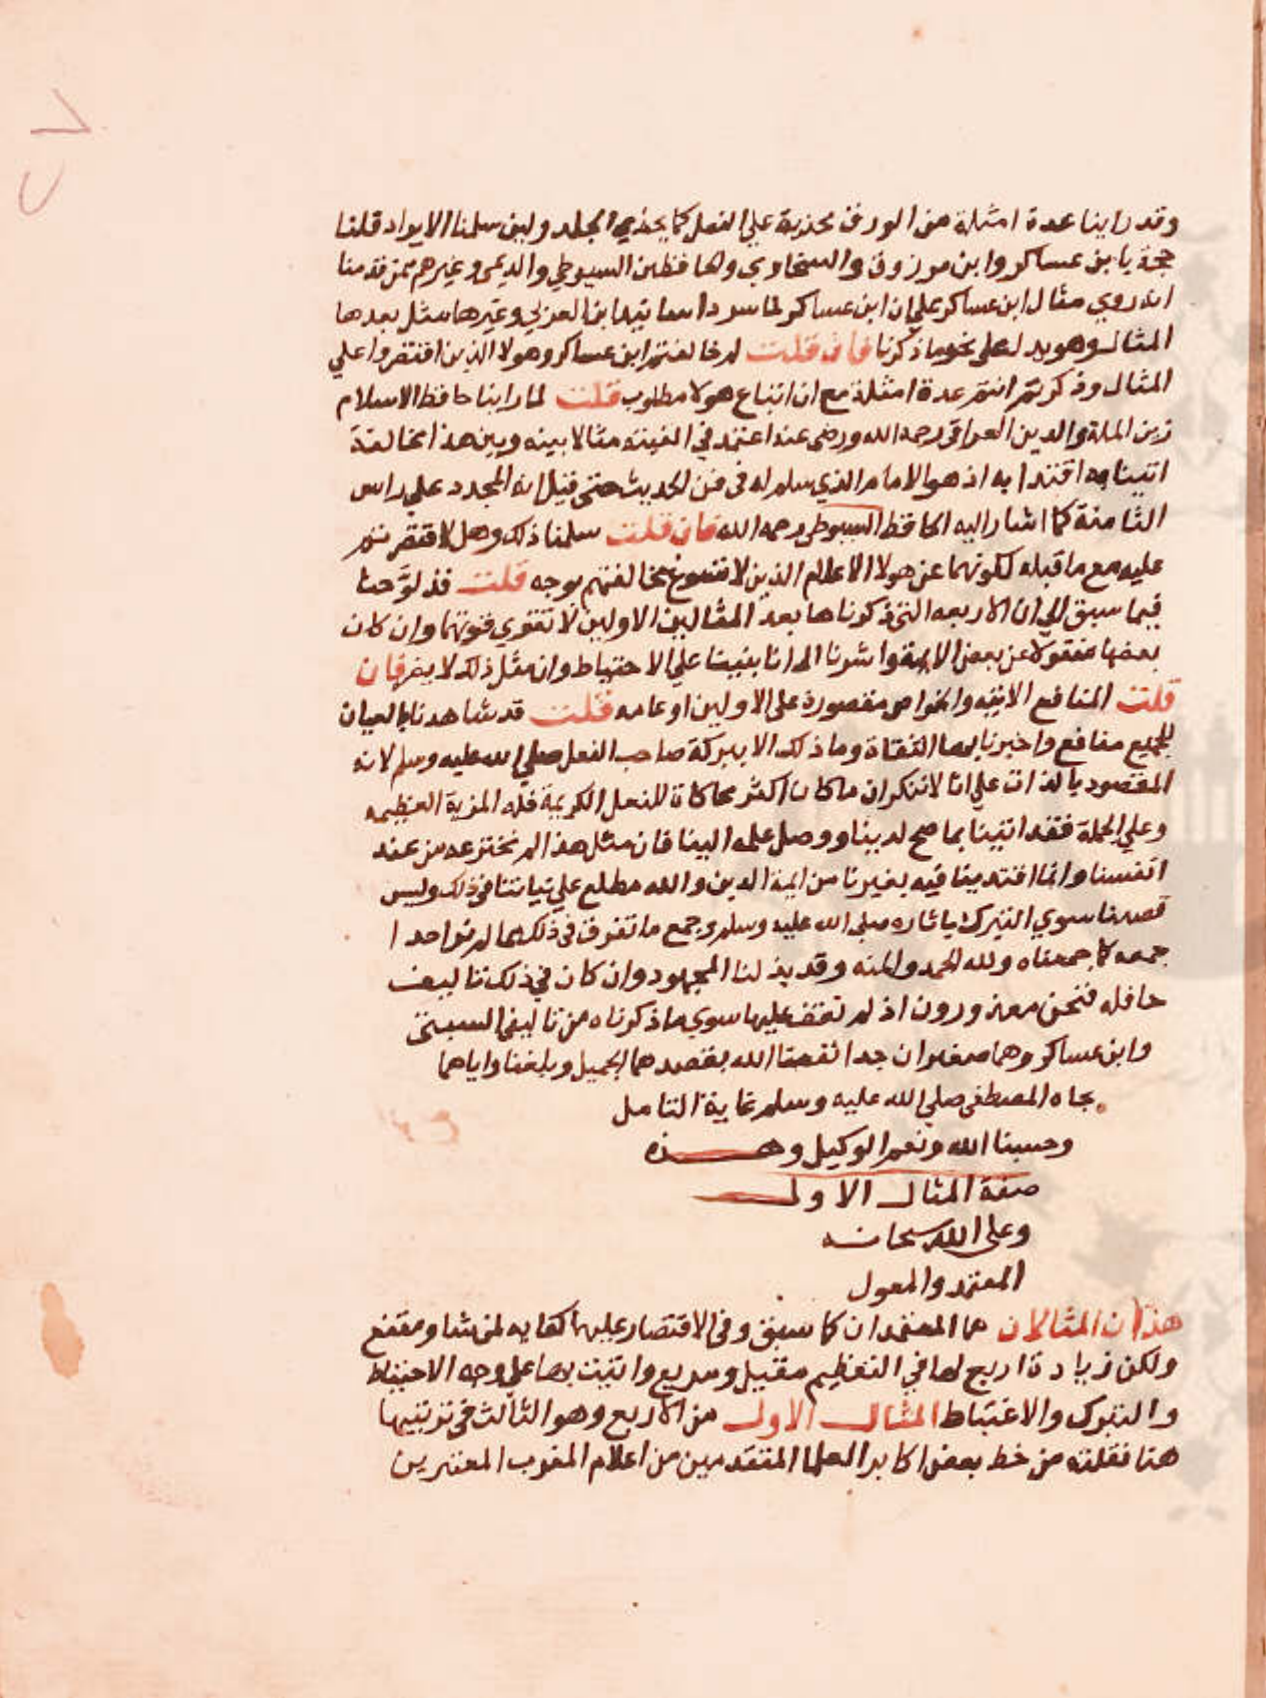 وقد راينا عدة امثلة من الورق محذية على النعل كما يحذي الجلد ولين سلمنا الايراد قلنا
حجة بابن عساكر وابن مرزوق والسخاوي والحافظين السيوطي والديمي وغيرهم ممن قدمنا
انه روي مثال ابن عساكر على ان ابن عساكر لما سرد اسانيد ابن العربي وغيرها مثل بعدها
المثال وهو يدل على نحو ما ذكرنا فان قلت لم خالفتم ابن عساكر وهولا الذين اقتصروا علي
المثال وذكرتم انتم عدة امثلة مع ان اتباع هولا مطلوب قلت لما راينا حافظ الاسلام
زين الملة والدين العراقي رحمه الله ورضي عنه اعتمد في الفيته مثالا بينه وبين هذا مخالفة
اتينا به اقتدا به اذ هو الامام الذي سلم له في فن الحديث حتى قيل انه المجدد علي راس
الثامنة كما اشار اليه الحافظ السيوطي رحمه الله فان قلت سلمنا ذلك وهل لا اقتصرتم
عليه مع ما قبله لكونهما عن هولا الاعلام الذين لا تسوغ مخالفتهم بوجه قلت قد لوحنا
فيما سبق الي ان الاربعه التي ذكرناها بعد المثالين الاولين لا تقوي قوتهما وان كان
بعضها منقولا عن بعض الايمة واشرنا الي انا بنينا علي الاحتياط وان مثل ذلك لا يضر فان
قلت المنافع الاتيه والخواص مقصورة على الاولين او عامه قلت قد شاهدنا بالعيان
لجميع منافع واخبرنا بها الثقاة وما ذلك الا ببركة صاحب النعل صلي الله عليه وسلم لانه
المقصود بالذات علي انا لا ننكر ان ما كان اكثر محاكاة للنعل الكريمة فله المزية العظيمه
وعلي الجملة فقد اتينا بما صح لدينا ووصل علمه الينا فان مثل هذا لم نخترعه من عند
انفسنا وانما اقتدينا فيه بغيرنا من ايمة الدين والله مطلع علي نياتنا في ذلك وليس
قصدنا سوي التبرك باثاره صلي الله عليه وسلم وجمع ما تفرق في ذلك مما لم نر احدا
جمعه كما جمعناه ولله الحمد والمنه وقد بذلنا المجهود وان كان في ذلك تاليف
حافله فنحن معذورون اذ لم نقف عليها سوي ما ذكرناه من تاليفي السبتي
وابن عساكر وهما صغيران جدا نفعنا الله بقصدهما الجميل وبلغنا واياهما
بجاه المصطفي صلي الله عليه وسلم غاية التامل
وحسبنا الله ونعم الوكيل وهـــذه
صفة المثال الاول
وعلى الله سبحانه
المعتمد والمعول
هذان المثالان هما المعتمدان كما سبق وفي الاقتصار عليهما كفايه لمن شا ومقنع
ولكن زيادة اربع لها في التعظيم مقيل ومربع واتيت بها علي وجه الاحتياط
والتبرك والاغتباط المثال الاول من الاربع وهو الثالث في ترتيبها
هنا نقلته من خط بعض اكابر العلما المتقدمين من اعلام المغرب المعتبرين